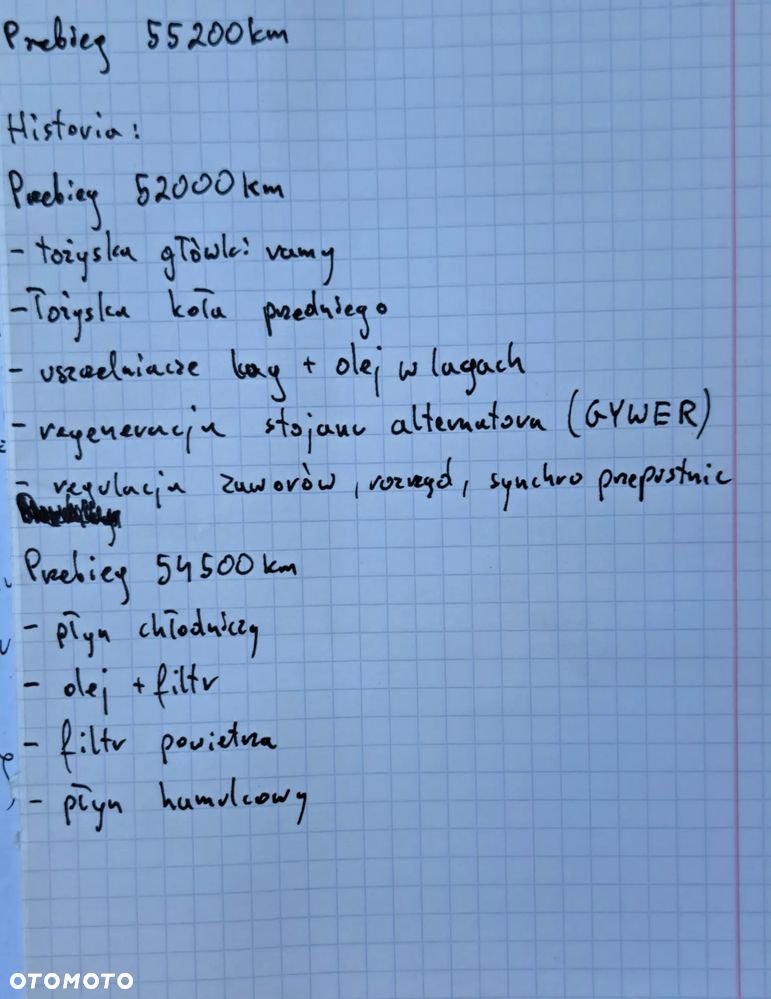 Przebieg 55200km
Historia:
Przebieg 52000km
- łożyska główki ramy
- łożyska koła przedniego
- uszczelniacze lag + olej w lagach
- regeneracja stojana alternatora (GYWER)
- regulacja zaworów, rozrząd, synchro przepustnic
Przebieg 54500km
- płyn chłodniczy
- olej + filtr
- filtr powietrza
- płyn hamulcowy
OTOMOTO